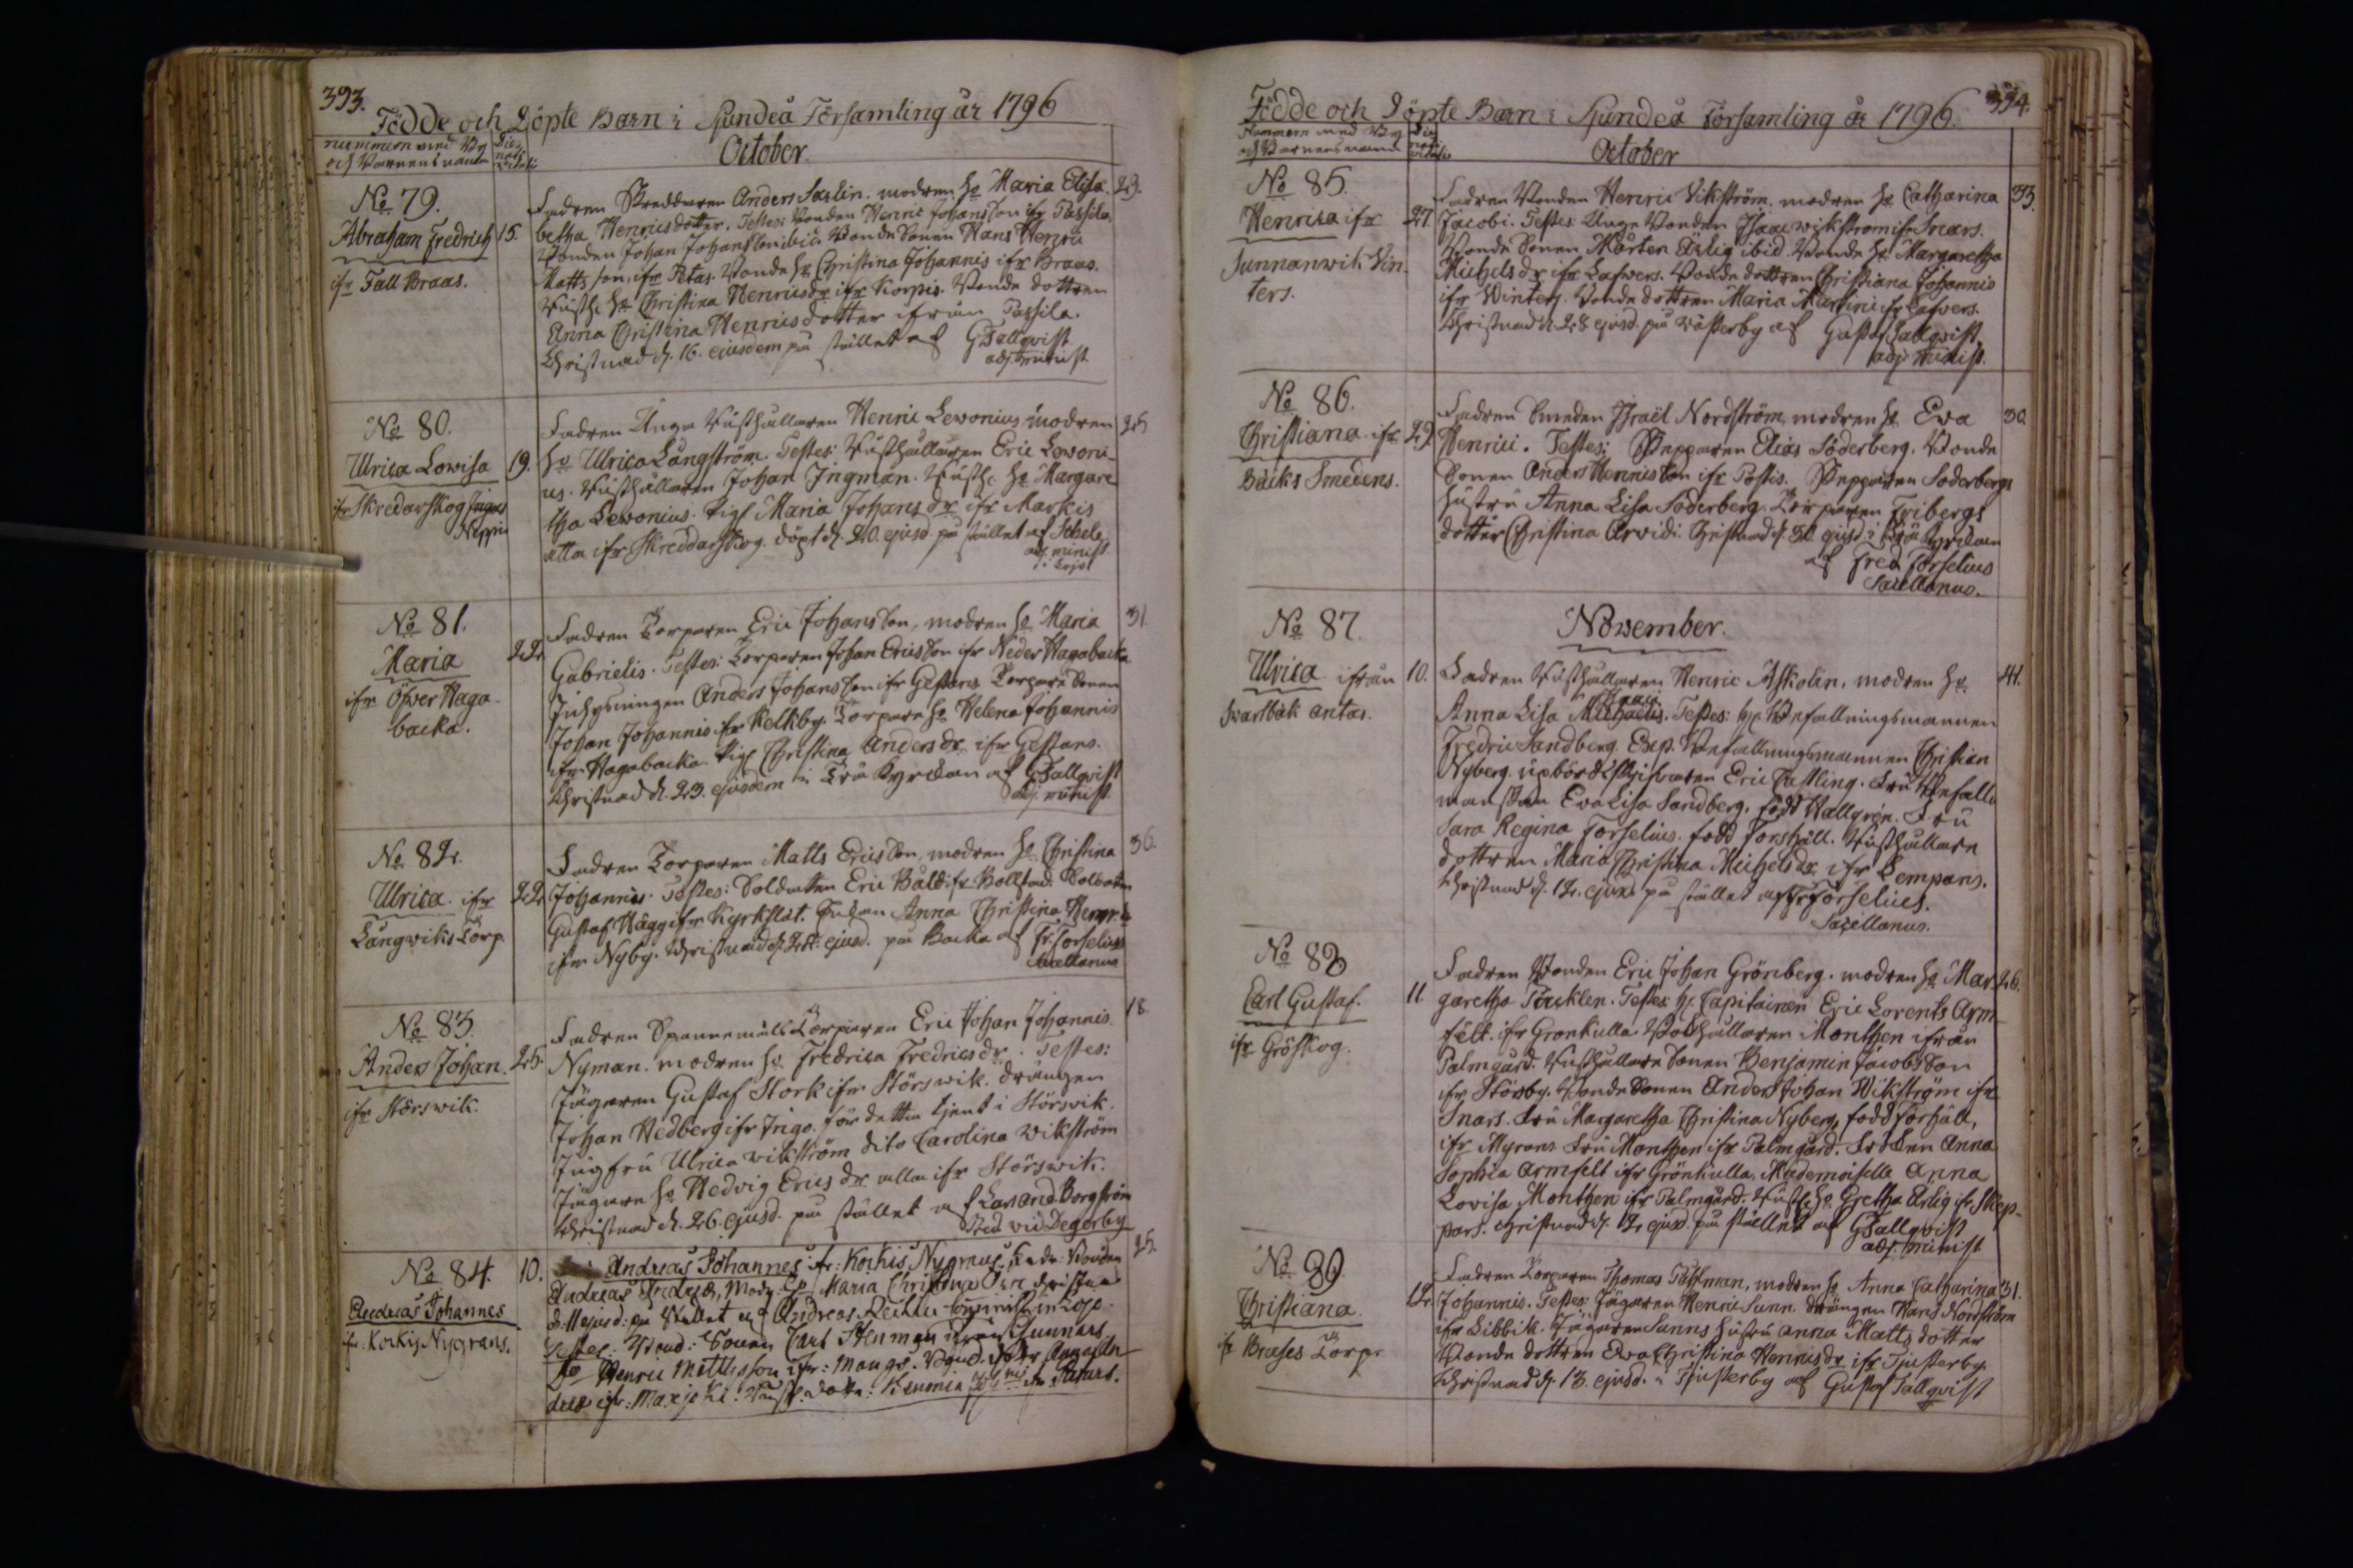 393.
Födde och Döpte Barn i Sjundeå Församling år 1796
nummern med By
och Barnens namn
Dies
nati-
vitatis
October.
No 79.
Abraham Fredrich
ifr Fall Braas.
15.
Fadren Skreddaren Anders Saxlin. modren h: Maria Elisa- 29.
betha Henricsdotter. Testes: Bonden Henric Johansson ifr Passila.
Bonden Johan Johansson ibid. Bonde Sonen Hans Henric
Mattsson ifr Petas. Bonde h: Christina Johannis ifr Braas.
Rusth: h: Christina Henricsdr ifr Korpis. Bonde dottren
Anna Christina Henricsdotter ifrån Passila.
Christnad d. 16. ejusdem på stället af GTallqvist
adj. minist.
No 80.
Ulrica Lowisa
ifr Skredarskog Ingars
Neppin
19.
Fadren Unge Rusthållaren Henric Lewonius modren 25
h: Ulrica Långström. Testes: Rusthållaren Eric Lewoni-
us. Rusthållaren Johan Ingman. Rusth: h: Margare
tha Lewonius. Pig: Maria Johansdr ifr Markis
alla ifr Skreddarskog. döpt d. 20. ejusd. på stället af Schele
adj. minist.
i Lojo
No 81.
Maria
ifr Öfwer Haga-
backa.
22.
Fadren Torparen Eric Johansson, modren h: Maria 31.
Gabrielis. Testes: Torparen Johan Ericsson ifr Neder Hagabacka
Inhysningen Anders Johansson ifr Gestans Torpare Sonen
Johan Johannis ifr Kelkby. Torpare h: Helena Johannis
ifr Hagabacka. Pig: Christina Andersdr ifr Gestans.
Christnad d. 23. ejusdem i Trä Kyrckan af GTallqvist
adj. minist.
No 82.
Ulrica ifr
Långwiks Torp.
22
Fadren Torparen Matts Ericsson, modren h: Christina 36.
Johannis. Testes: Soldatten Eric Båld ifr Bollstad. Soldaten
Gustaf Hägg ifr Kyrkslät. Pigan Anna Christina Henr:
ifr Nyby. Christnad d. 24. ejusd. på Backa af Fr. Forselius
Sacellanus
No 83.
Anders Johan.
ifr Störswik.
25.
Fadren Spannemåls Torparen Eric Johan Johannis 18.
Nyman. modren h: Fredrica Fredricsdr. Testes:
Jägaren Gustaf Stork ifr Störswik. drängen
Johan Hedberg ifr Frigo. för detta tjent i Störsvik.
Jungfru Ulrica wikström dito Carolina Wikström
Jägare h: Hedvig Ericsdr alla ifr Störswik.
Christnad d. 26. ejusd. på stället af Lars And. Borgström
Past vid Degerby
No 84.
Andreas Johannes
ifr: Kockis Nygrans.
10.
Andreas Johannes ifr: Kockis Nygrans. Fadr: Bonden 25.
Andreas Fredric, Modr: h: Maria Christina christnad
d: 11 ejusd: på Stället af Andreas i Lojo.
Testes: Bond: Sonen Carl Stenman ifrån Gunnars
Henric Mattsson ifr: Mangs.
ifr: Marjoki.
394.
Födde och Döpte Barn i Sjundeå Församling år 1796.
Nummern med By
och Barnens namn
Dies
nati-
vitatis
October
No 85.
Henrica ifr
Sunnanwik Vin-
ters.
27.
Fadren Bonden Henric Vikström, modren h: Catharina 33.
Jacobi. Testes: Unge Bonden Isaac wikström ifr Snars.
Bonde Sonen Mårten Ärlig ibid. Bonde h: Margaretha
Michelsdr ifr Lafwers. Bonde dottren Christiana Johannis
ifr Winters. Bonde dottren Maria Martini ifr Lafvers.
Christnad d. 28 ejusd. på Wästerby af Gustaf Tallqvist
adj. minist.
No 86.
Christiana. ifr
Bäcks Smedens.
29
Fadren Smeden Israel Nordström, modren h: Eva 30.
Henrici. Testes: Skepparen Elias Söderberg. Bonde
Sonen Anders Henricsson ifr Postis. Skepparen Soderbergs
hustru Anna Lisa Soderberg. Torparen Fribergs
dotter Christina Arvidi. Christnad d. 30. ejusd. i Trä Kyrckan
af Fred. Forselius
Sacellanus.
November.
No 87.
Ulrica ifrån
Swartbäk antas.
10.
Fadren Rusthållaren Henric Askolin, modren h: 41.
Isaaci
Anna Lisa Michaelis. Testes: hr Befallningsmannen
Fredric Sandberg. Exp. Befallningsmannen Christian
Nyberg. upbörds Skrifvaren Eric Castling. Fru Befallnings
manskan Eva Lisa Sandberg. född Hallgrén. Fru
Sara Regina Forselius. född Forshäll. Rusthållare
dottren Maria Christina Michelsdr ifr Sempans.
Christnad d. 12. ejusd. på stället af Fr Forselius.
Sacellanus.
No 88
Carl Gustaf.
ifr Gröskog.
11.
Fadren Bonden Eric Johan Grönberg. modren h: Mar- 26.
garetha Törcklen. Testes: hr Capitainen Eric Lorents Arm-
felt. ifr Grönkulla. Bokhållaren Monthen ifrån
Palmgård. Rusthållare Sonen Benjamin Jacobsson
ifr Störsby. Bonde Sonen Anders Johan Wikström ifr
Snars. Fru Margaretha Christina Nyberg, född Förhäll,
ifr Myrans Fru Monthen ifr Palmgård. Fröken Anna
Sophia Armfelt ifr Grönkulla, Mademoiselle Anna
Lovisa Monthen ifr Palmgård. Rusth: h: Gretha Ärlig ifr Skep-
pars. Christnad d. 12 ejusd. på stället af GTallqvist
adj. minist
No 89.
Christiana.
ifr Bruses Torp.
12.
Fadren Torparen Thomas Påhlman, modren h: Anna Catharina 31.
Johannis. Testes: Jägaren Henric Sunn. drängen Hans Nordström
ifr Libbik. Jägaren Sunns hustru Anna Matts dotter
Bonde dottren Eva Christina Henricsdr ifr Tjusterby.
Christnad d. 13. ejusd. i Tjusterby af Gustaf Tallqvist